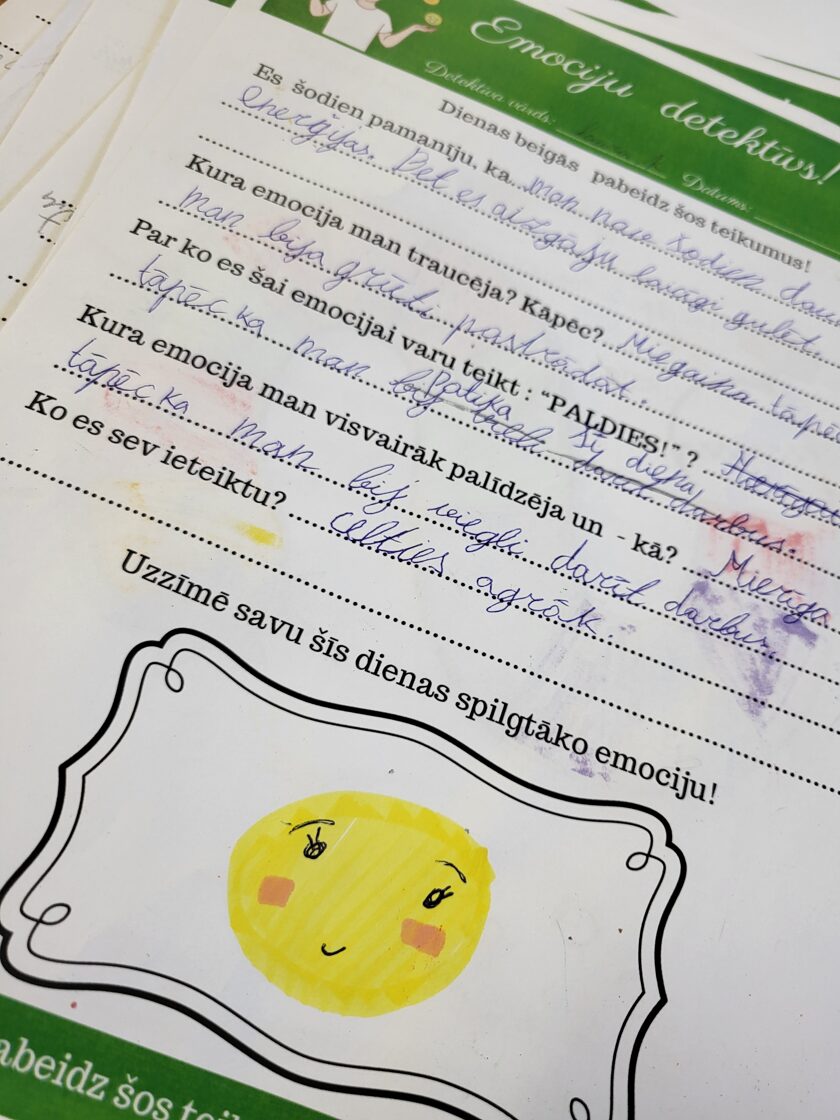 Emociju detektīvs!
Detektīva vārds: Datums:
Dienas beigās pabeidz šos teikumus!
Es šodien pamanīju, ka man nav šodien dau
enerģijas. Bet es aizgāju
gulēt.
Kura emocija man traucēja? Kāpēc? Miegaina tāpē
man bija grūti pastrādāt.
Par ko es šai emocijai varu teikt : "PALDIES!" ?
Patika šī diena,
tāpēc ka man bij darīt darbus.
Kura emocija man visvairāk palīdzēja un - kā? Mierīga
tāpēc ka man bij viegli darīt darbus.
Ko es sev ieteiktu? celties agrāk.
Uzzīmē savu šīs dienas spilgtāko emociju!
abeidz šos tei